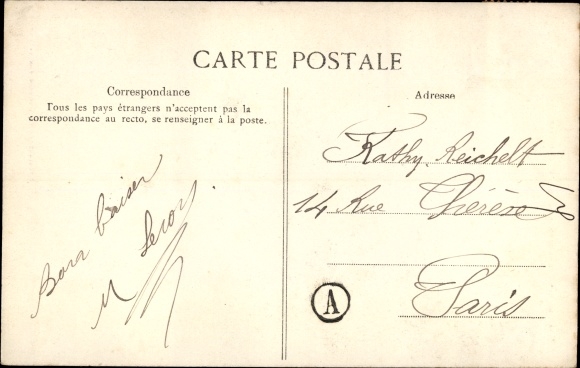 CARTE POSTALE
Correspondance
Tous les pays étrangers n'acceptent pas la
correspondance au recto, se renseigner à la poste.
Bon baiser
M Leroy
Adresse
Kathy Reichelt
14 Rue Thérèse
Paris
A